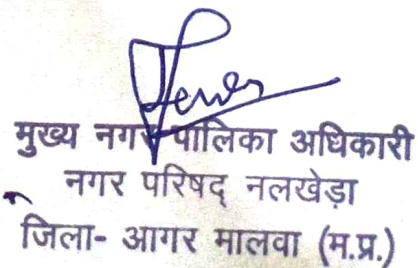 मुख्य नगर पालिका अधिकारी
नगर परिषद् नलखेड़ा
जिला- आगर मालवा (म.प्र.)